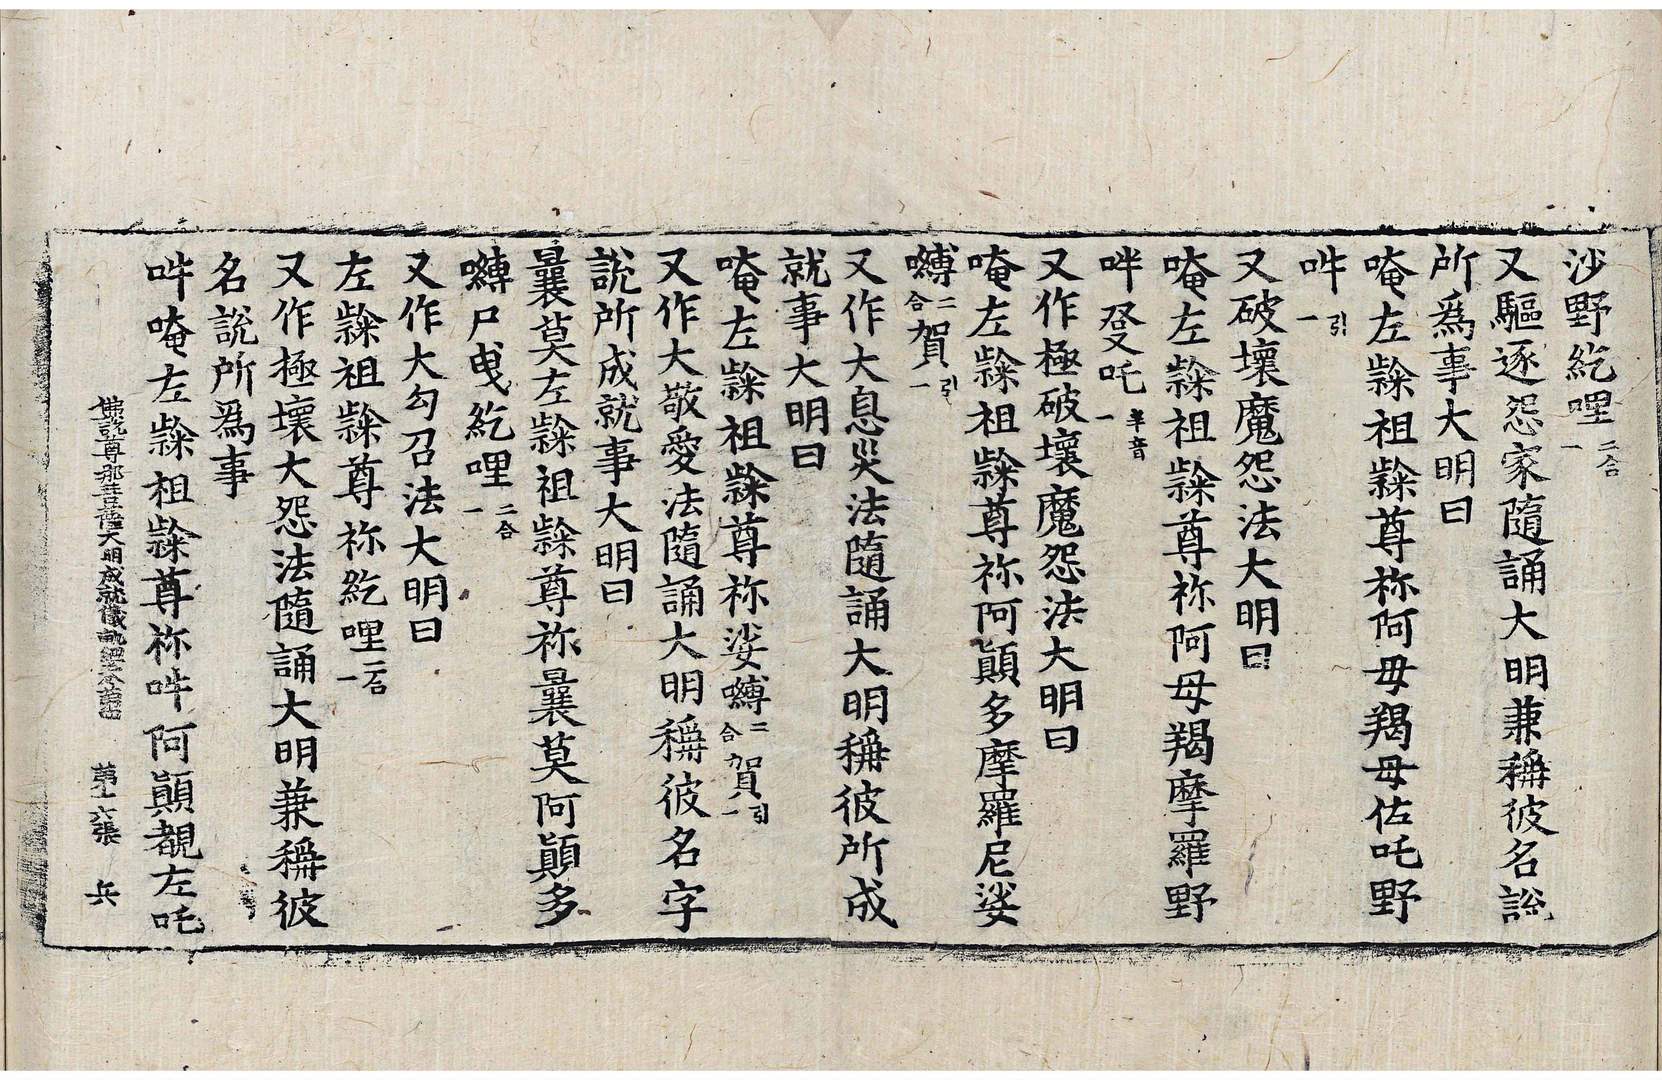 沙野紇哩二合一
又驅逐怨家隨誦大明兼稱彼名說
所爲事大明曰
唵左𨽻祖𨽻尊祢阿毋羯毋佐吒野
吽引一
又破壞魔怨法大明曰
唵左𨽻祖𨽻尊祢阿毋羯摩羅野
吽發吒半音一
又作極破壞魔怨法大明曰
唵左𨽻祖𨽻尊祢阿顛多摩羅尼娑
嚩二合賀引一
又作大息災法隨誦大明稱彼所成
就事大明曰
唵左𨽻祖𨽻尊祢娑嚩二合賀引一
又作大敬愛法隨誦大明稱彼名字
說所成就事大明曰
曩莫左𨽻祖𨽻尊祢曩莫阿顛多
嚩尸曳紇哩二合一
又作大勾召法大明曰
左𨽻祖𨽻尊祢紇哩二合一
又作極壞大怨法隨誦大明兼稱彼
名說所爲事
吽唵左𨽻祖𨽻尊祢吽阿顛覩左吒
佛說尊那菩薩大明成就儀軌經卷第四 第十六張 兵